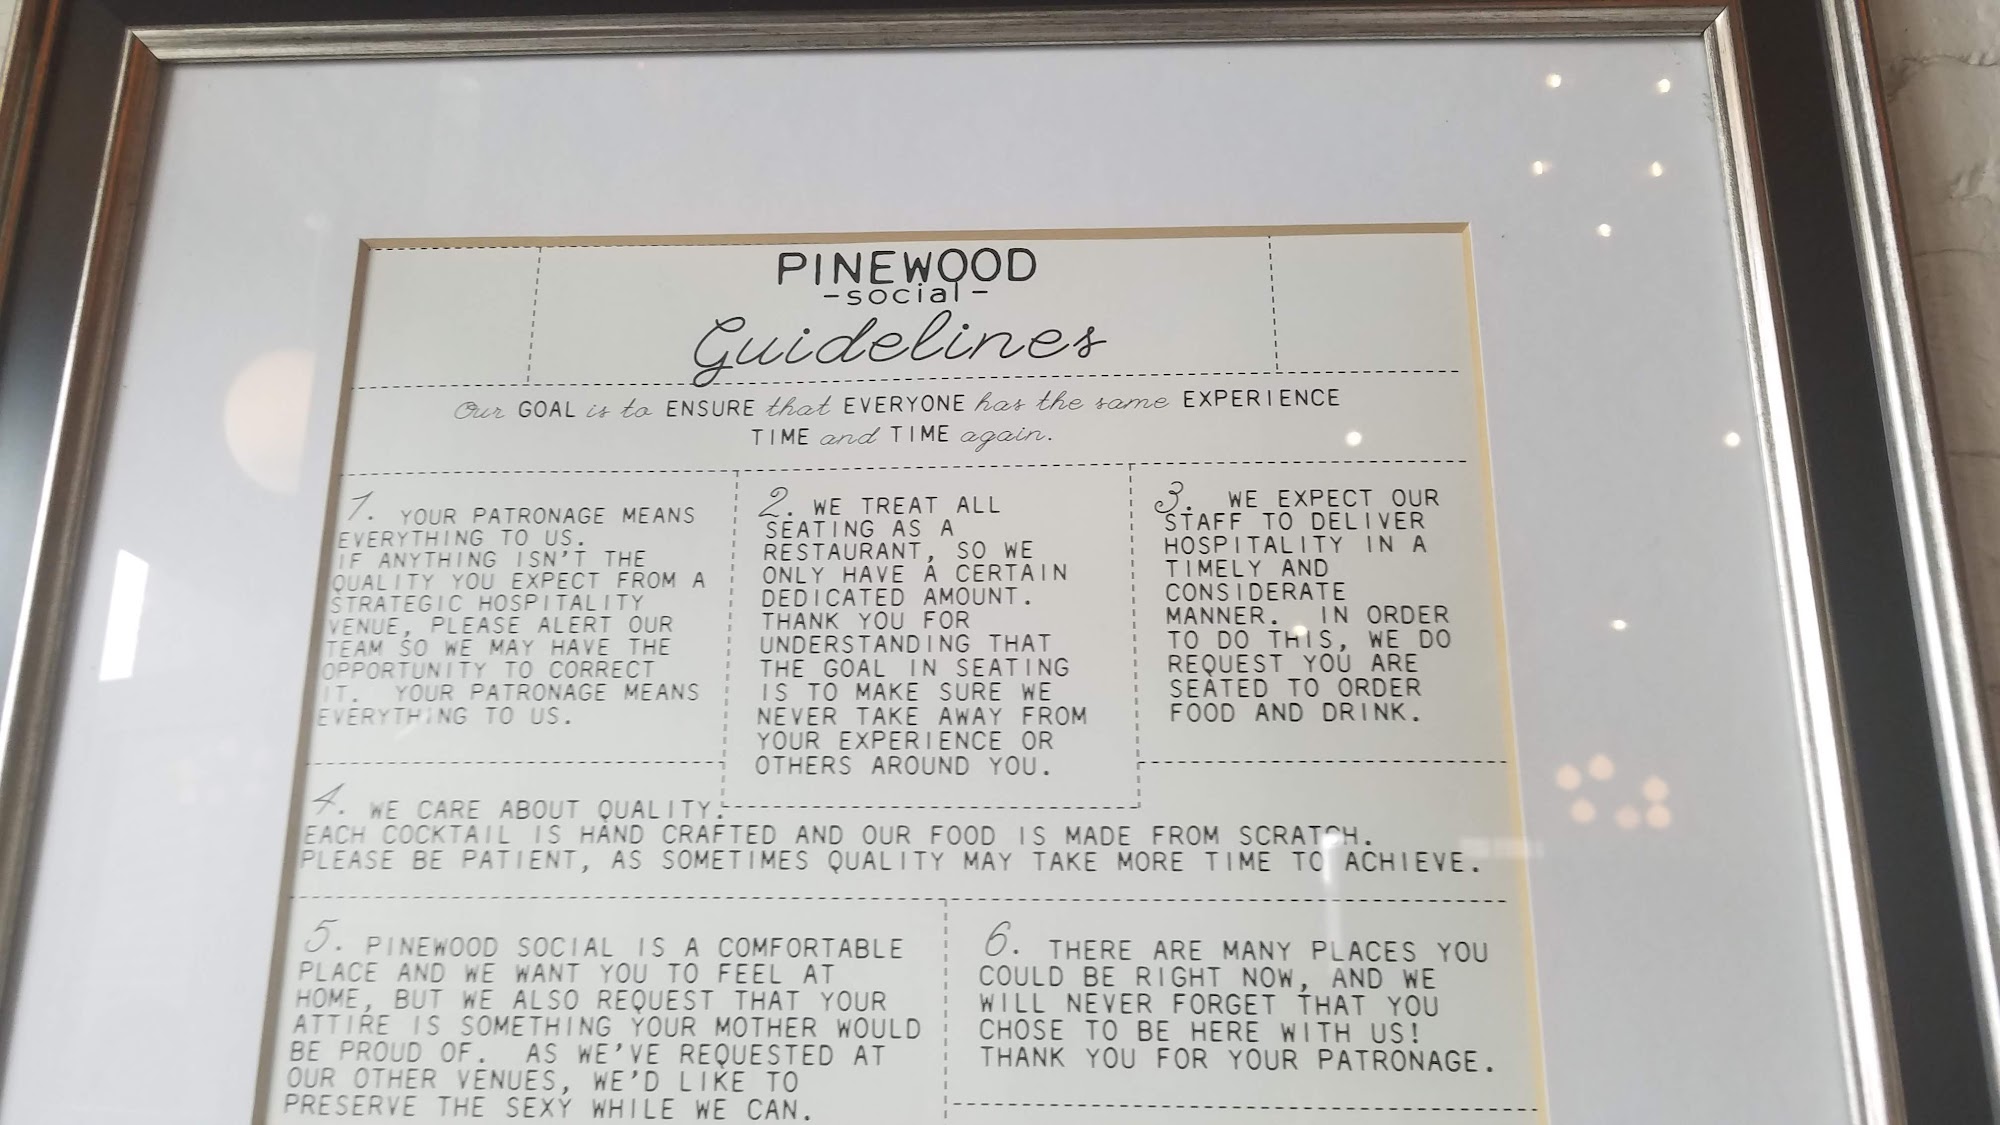 PINEWOOD
-social-
Guidelines
Our GOAL is to ENSURE that EVERYONE has the same EXPERIENCE
TIME and TIME again.
1. YOUR PATRONAGE MEANS
EVERYTHING TO US.
IF ANYTHING ISN'T THE
QUALITY YOU EXPECT FROM A
STRATEGIC HOSPITALITY
VENUE, PLEASE ALERT OUR
TEAM SO WE MAY HAVE THE
OPPORTUNITY TO CORRECT
IT. YOUR PATRONAGE MEANS
EVERYTHING TO US.
2. WE TREAT ALL
SEATING AS A
RESTAURANT, SO WE
ONLY HAVE A CERTAIN
DEDICATED AMOUNT.
THANK YOU FOR
UNDERSTANDING THAT
THE GOAL IN SEATING
IS TO MAKE SURE WE
NEVER TAKE AWAY FROM
YOUR EXPERIENCE OR
OTHERS AROUND YOU.
3. WE EXPECT OUR
STAFF TO DELIVER
HOSPITALITY IN A
TIMELY AND
CONSIDERATE
MANNER. IN ORDER
TO DO THIS, WE DO
REQUEST YOU ARE
SEATED TO ORDER
FOOD AND DRINK.
4. WE CARE ABOUT QUALITY.
EACH COCKTAIL IS HAND CRAFTED AND OUR FOOD IS MADE FROM SCRATCH.
PLEASE BE PATIENT, AS SOMETIMES QUALITY MAY TAKE MORE TIME TO ACHIEVE.
5. PINEWOOD SOCIAL IS A COMFORTABLE
PLACE AND WE WANT YOU TO FEEL AT
HOME, BUT WE ALSO REQUEST THAT YOUR
ATTIRE IS SOMETHING YOUR MOTHER WOULD
BE PROUD OF. AS WE'VE REQUESTED AT
OUR OTHER VENUES, WE'D LIKE TO
PRESERVE THE SEXY WHILE WE CAN.
6. THERE ARE MANY PLACES YOU
COULD BE RIGHT NOW, AND WE
WILL NEVER FORGET THAT YOU
CHOSE TO BE HERE WITH US!
THANK YOU FOR YOUR PATRONAGE.